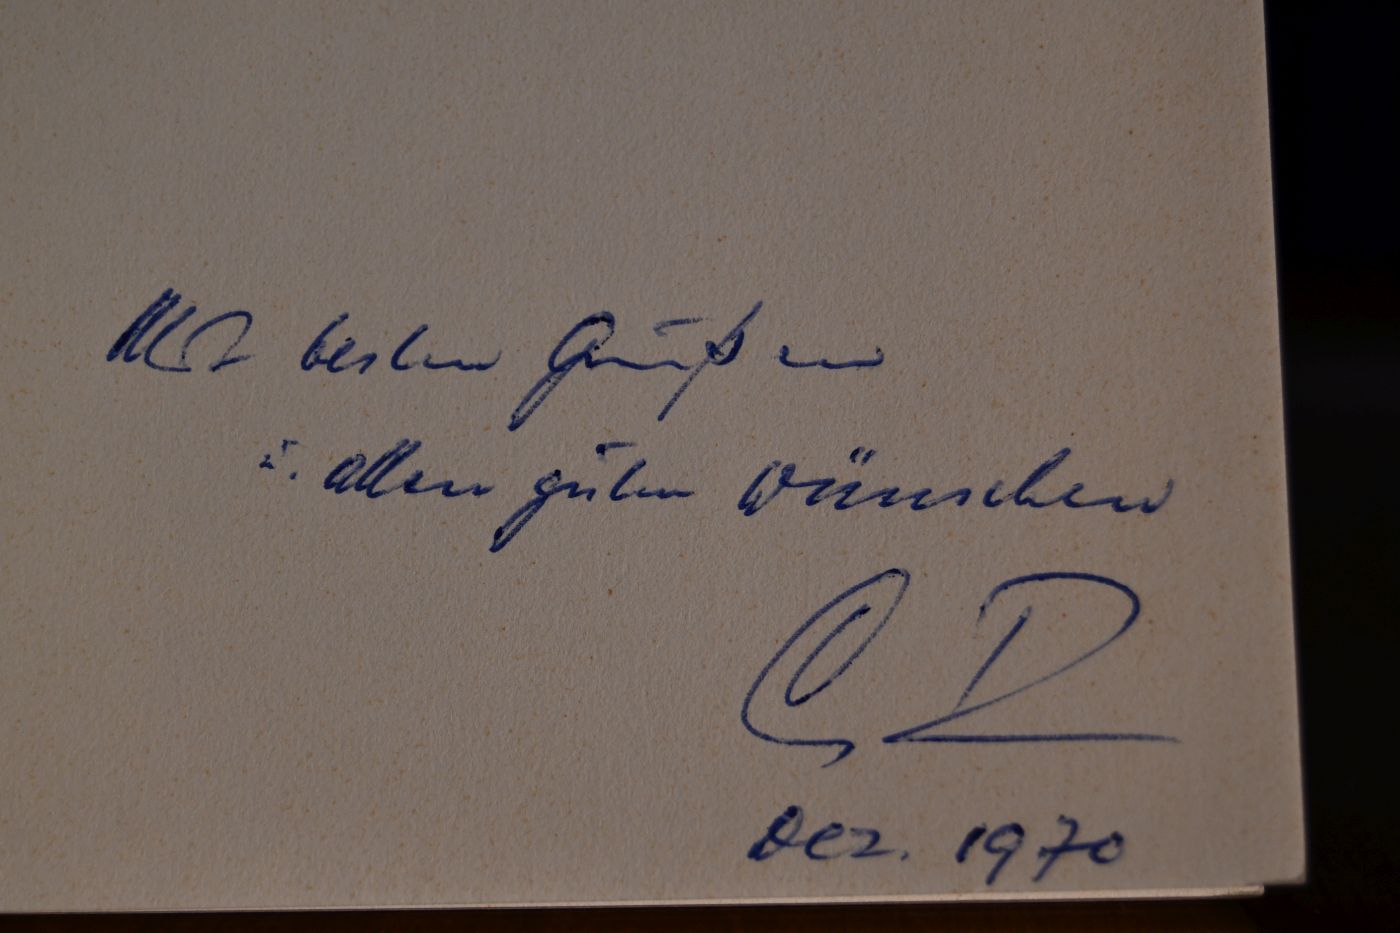 Mit besten Grüßen
u. allen guten Wünschen
CD
Dez. 1970